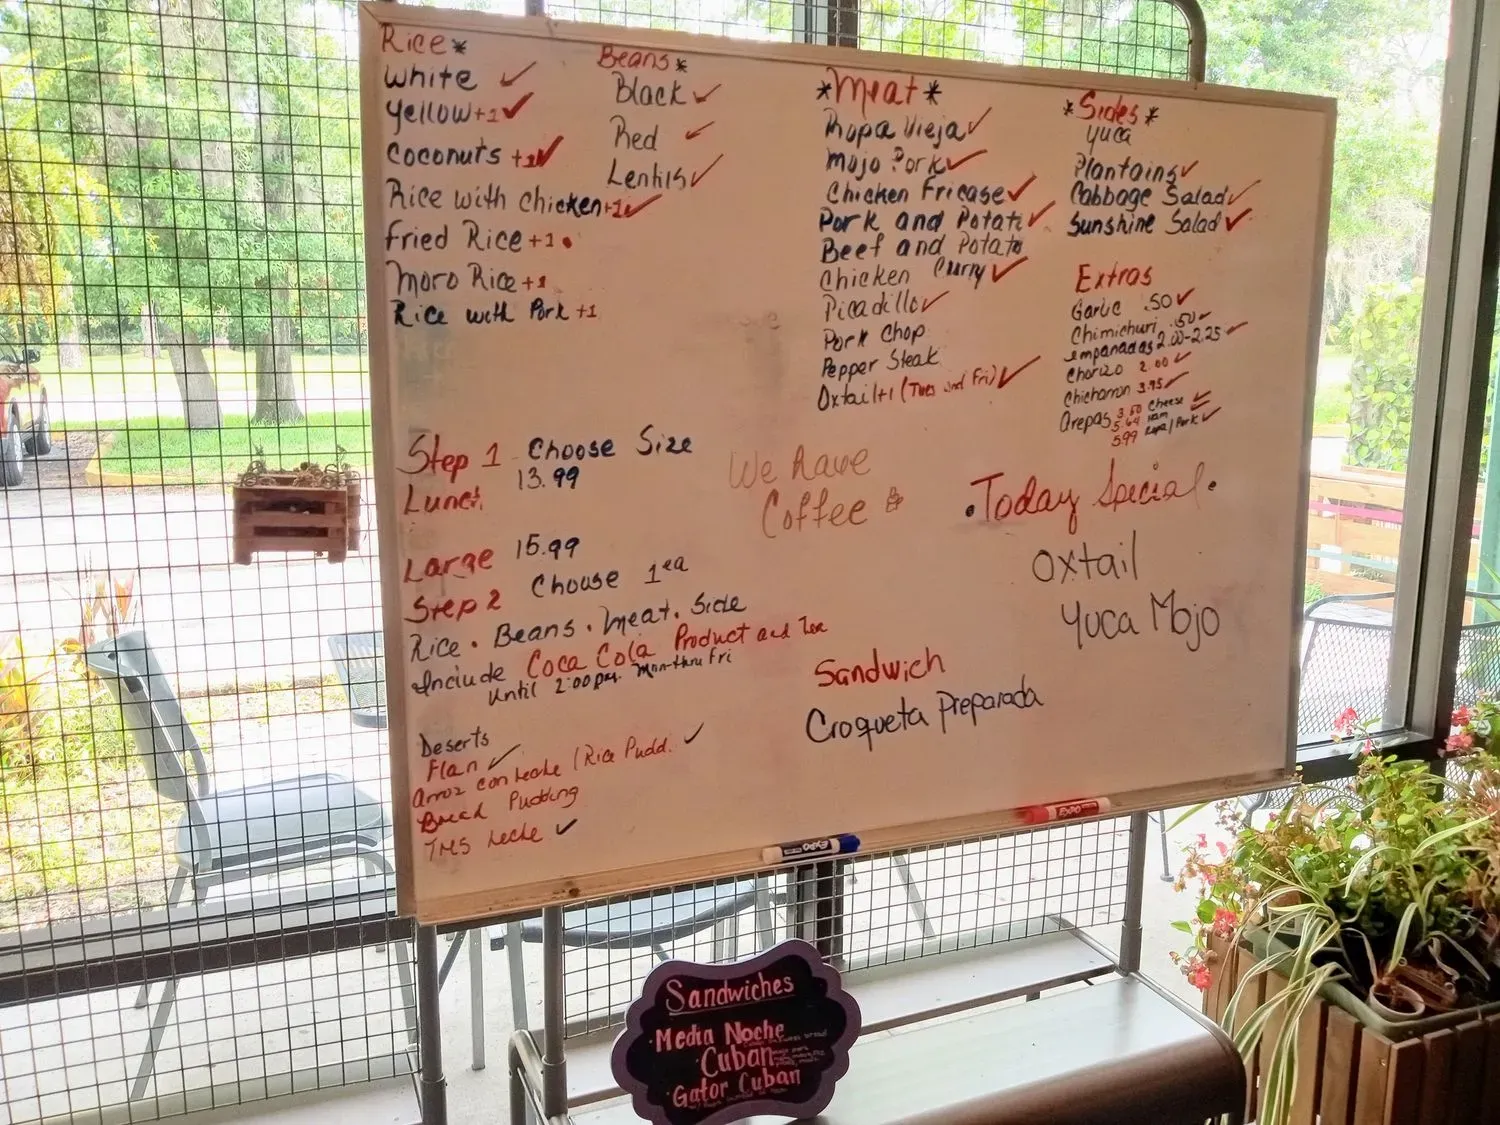 Rice*
White ✓
Yellow +1 ✓
Coconuts +1 ✓
Rice with chicken +1 ✓
Fried Rice +1
Moro Rice +1
Rice with Pork +1
Beans*
Black ✓
Red ✓
Lentils ✓
*Meat*
Ropa Vieja ✓
Mojo Pork ✓
Chicken Fricase ✓
Pork and Potato ✓
Beef and Potato
Chicken Curry ✓
Picadillo ✓
Pork Chop
Pepper Steak
Oxtail +1 (Tues and Fri) ✓
*Sides*
Yuca
Plantains ✓
Cabbage Salad ✓
Sunshine Salad ✓
Extras
Garlic .50 ✓
Chimichuri .50 ✓
empanadas 2.00-2.25 ✓
Chorizo 2.00 ✓
Chicharron 3.95 ✓
Arepas 3.60 Cheese ✓
5.64 Ham ✓
5.99 Ropa/Pork ✓
Step 1 Choose Size
Lunch 13.99
Large 15.99
Step 2 Choose 1ea
Rice • Beans • Meat • Side
Include Coca Cola Product and Tea
Until 2:00pm. Mon-thru Fri
We have
Coffee
• Today Special •
Oxtail
Yuca Mojo
Sandwich
Croqueta Preparada
Deserts
Flan ✓
Arroz con Leche / Rice Pudd. ✓
Bread Pudding
Tres Leche ✓
EXPO
EXPO
Sandwiches
• Media Noche
Cuban
• Gator Cuban